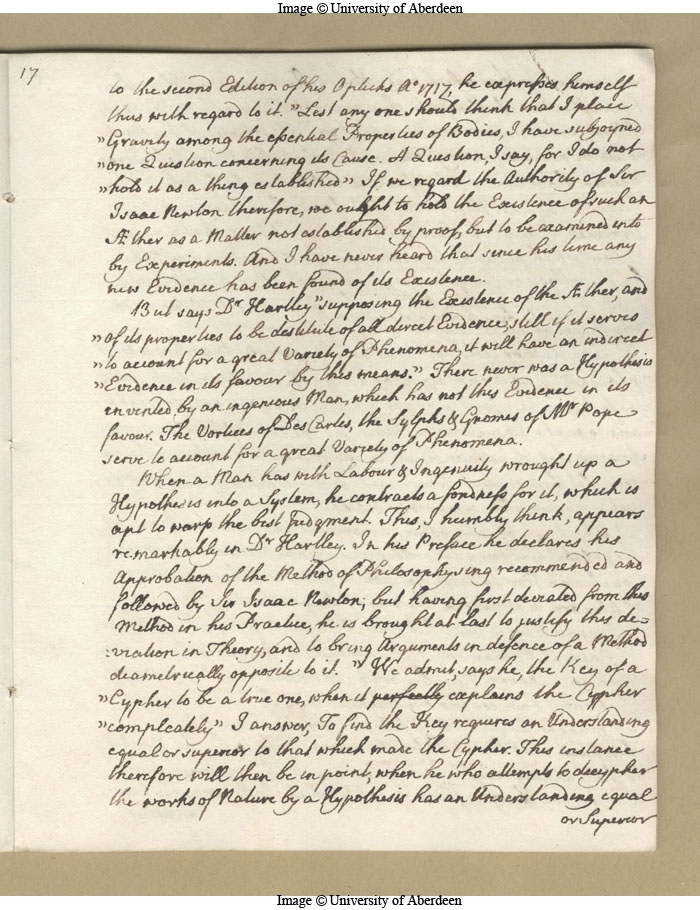 Image © University of Aberdeen
17
to the second Edition of his Opticks Ao 1717, he expresses himself
thus with regard to it. "Lest any one should think that I place
"Gravity among the essential Properties of Bodies, I have subjoyned
"one Question concerning its Cause. A Question, I say, for I do not
"hold it as a thing established" If we regard the Authority of Sir
Isaac Newton therefore, we ought to hold the Existence of such an
Æther as a Matter not established by proof, but to be examined into
by Experiments. And I have never heard that since his time any
new Evidence has been found of its Existence.
But says Dr Hartley "supposing the Existence of the Æther, and
"of its properties to be destitute of all direct Evidence, still if it serves
"to account for a great Variety of Phenomena, it will have an indirect
"Evidence in its favour by this means." There never was a Hypothesis
invented by an ingenious Man, which has not this Evidence in its
favour. The Vortices of Des Cartes, the Sylphs & Gnomes of Mr Pope
serve to account for a great Variety of Phenomena.
When a Man has with Labour & Ingenuity wrought up a
Hypothesis into a System, he contracts a fondness for it, which is
apt to warp the best Judgment. This, I humbly think, appears
remarkably in Dr Hartley. In his Preface he declares his
Approbation of the Method of Philosophysing recommended and
followed by Sir Isaac Newton; but having first deviated from this
Method in his Practice, he is brought at last to justify this de=
=viation in Theory, and to bring Arguments in defence of a Method
diametrically opposite to it. "We admit, says he, the Key of a
"Cypher to be a true one, when it perfectly explains the Cypher
"compleately" I answer, To find the Key requires an Understanding
equal or superior to that which made the Cypher. This instance
therefore will then be in point, when he who attempts to decypher
the works of Nature by a Hypothesis has an Understanding equal
or Superior
Image © University of Aberdeen